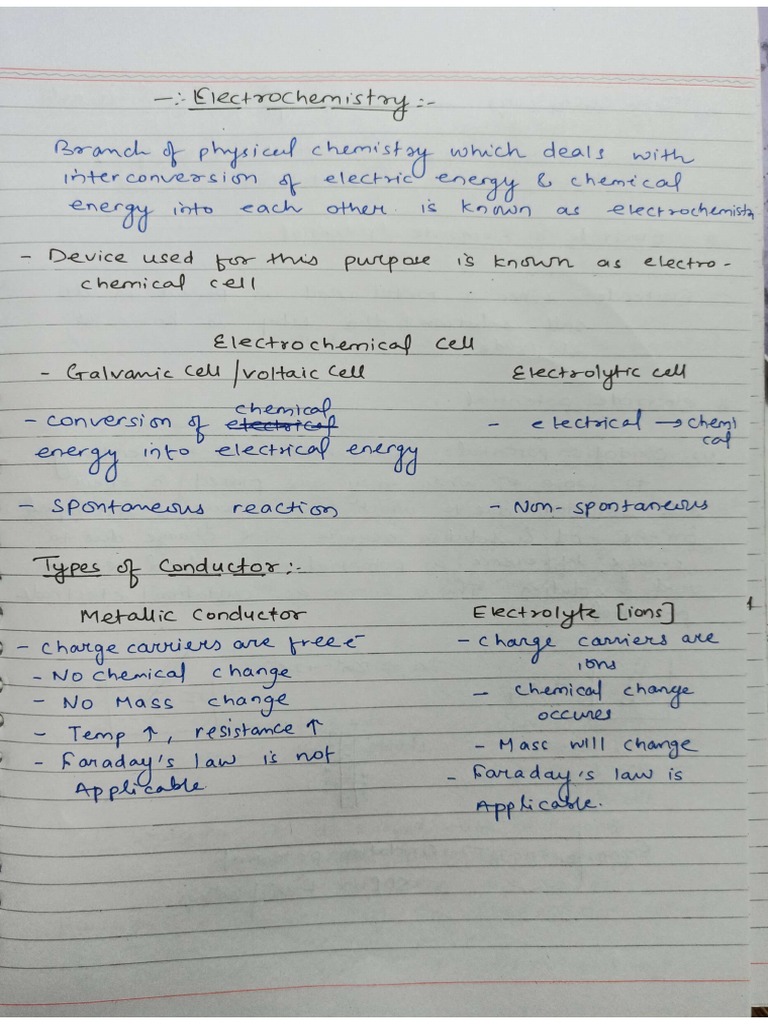 -:- Electrochemistry :-
Branch of physical chemistry which deals with
interconversion of electric energy & chemical
energy into each other. is known as electrochemistr
- Device used for this purpose is known as electro-
chemical cell
Electrochemical cell
- Galvanic cell / voltaic cell
Electrolytic cell
- conversion of electrical chemical
energy into electrical energy
- electrical → chemi
cal
- spontaneous reaction
- Non-spontaneous
Types of Conductor :-
Metallic Conductor
- charge carriers are free e-
- No chemical change
- No Mass change
- Temp ↑, resistance ↑
- Faraday's law is not
Applicable.
Electrolyte [ions]
- charge carriers are
ions
- chemical change
occures
- Mass will change
- Faraday's law is
Applicable.